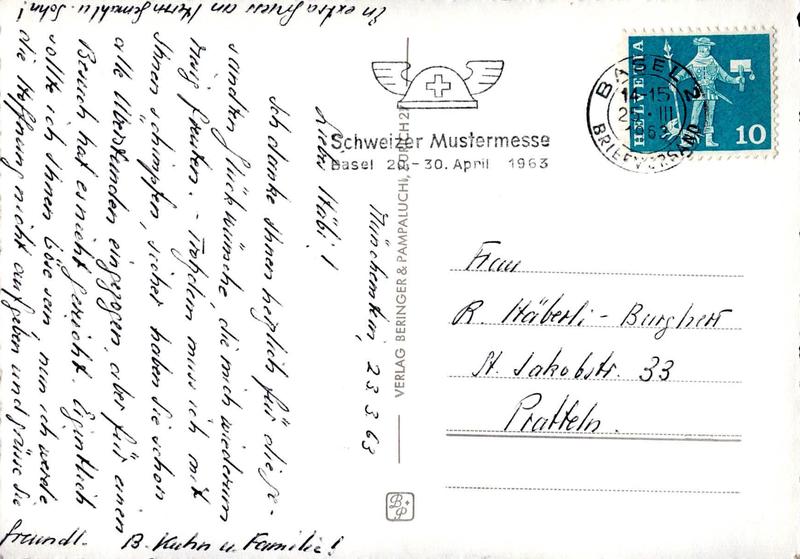 Münchenstein, 23.3.63
Liebe Häbi!
Ich danke Ihnen herzlich für die ge-
sandten Glückwünsche, die mich wiederum
riesig freuten. – Trotzdem muss ich mit
Ihnen schimpfen, sicher haben Sie schon
alle Überstunden eingezogen, aber für einen
Besuch hat es nicht gereicht. Eigentlich
sollte ich Ihnen böse sein, nun ich werde
die Hoffnung nicht aufgeben und grüsse Sie
freundl. B. Kuhn u. Familie!
En extra gruess an Herrn gemahl u. Sohn!
Schweizer Mustermesse
Basel 20.-30. April 1963
BASEL 2
14-15
III
1963
BRIEFVERSAND
HELVETIA
10
VERLAG BERINGER & PAMPALUCHI, ZÜRICH
B+P
Frau
R. Häberli-Burghert
St. Jakobstr. 33
Pratteln.